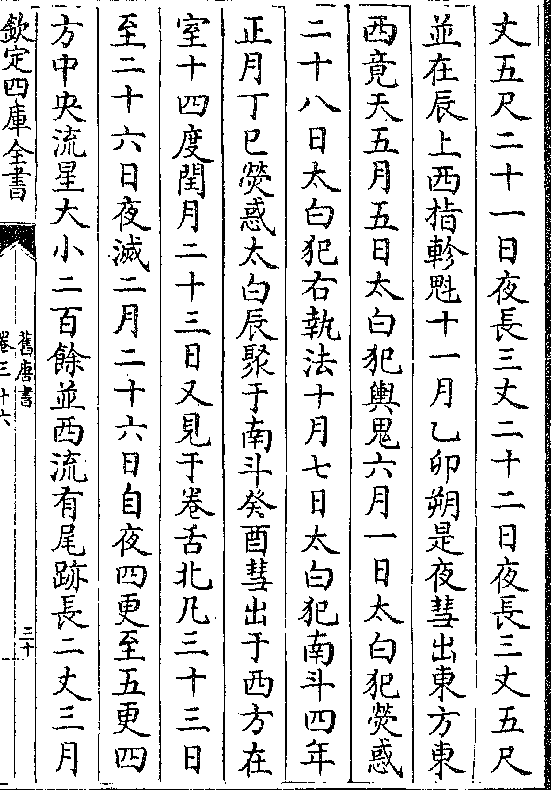 丈五尺二十一日夜長三丈二十二日夜長三丈五尺
並在辰上西指軫魁十一月乙卯朔是夜彗出東方東
西竟天五月五日太白犯輿鬼六月一日太白犯熒惑
二十八日太白犯右執法十月七日太白犯南斗四年
正月丁巳熒惑太白辰聚于南斗癸酉彗出于西方在
室十四度閏月二十三日又見于卷舌北凡三十三日
至二十六日夜滅二月二十六日自夜四更至五更四
方中央流星大小二百餘並西流有尾跡長二丈三月
欽定四庫全書
舊唐書
卷三十六
三十